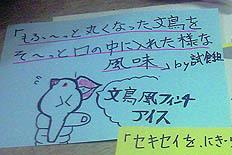 「もふ〜っと丸くなった文鳥を
そ〜っと口の中に入れた様な
風味」by試食組
文鳥風フィンチ
アイス
「セキセイを、にき